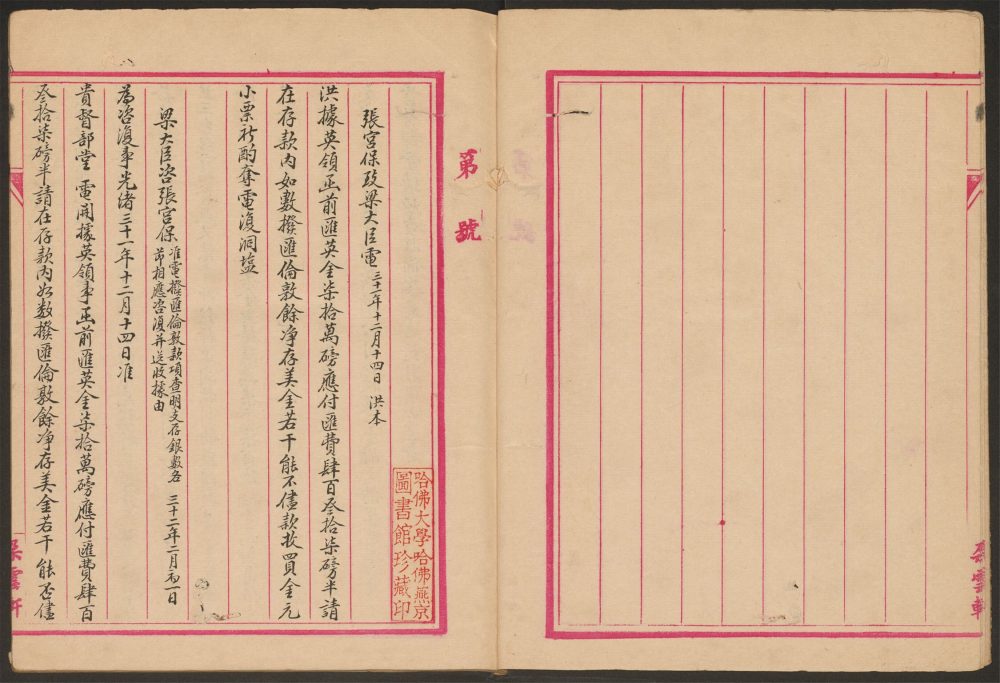 第 號
張宮保致梁大臣電 三十一年十二月十四日 洪本
洪據英領函前匯英金柒拾萬磅應付匯費肆百叁拾柒磅半請
在存款內如數撥匯倫敦餘净存美金若干能不儘款收買金元
小票祈酌奪電復洞塩
梁大臣咨張宮保 准電撥匯倫敦款項查明支存銀數各
節相應咨復并送收據由 三十二年二月初一日
為咨復事光緒三十一年十二月十四日准
貴督部堂 電開據英領事函前匯英金柒拾萬磅應付匯費肆百
叁拾柒磅半請在存款內如数撥匯倫敦餘净存美金若干能否儘
哈佛大學哈佛燕京
圖書館珍藏印